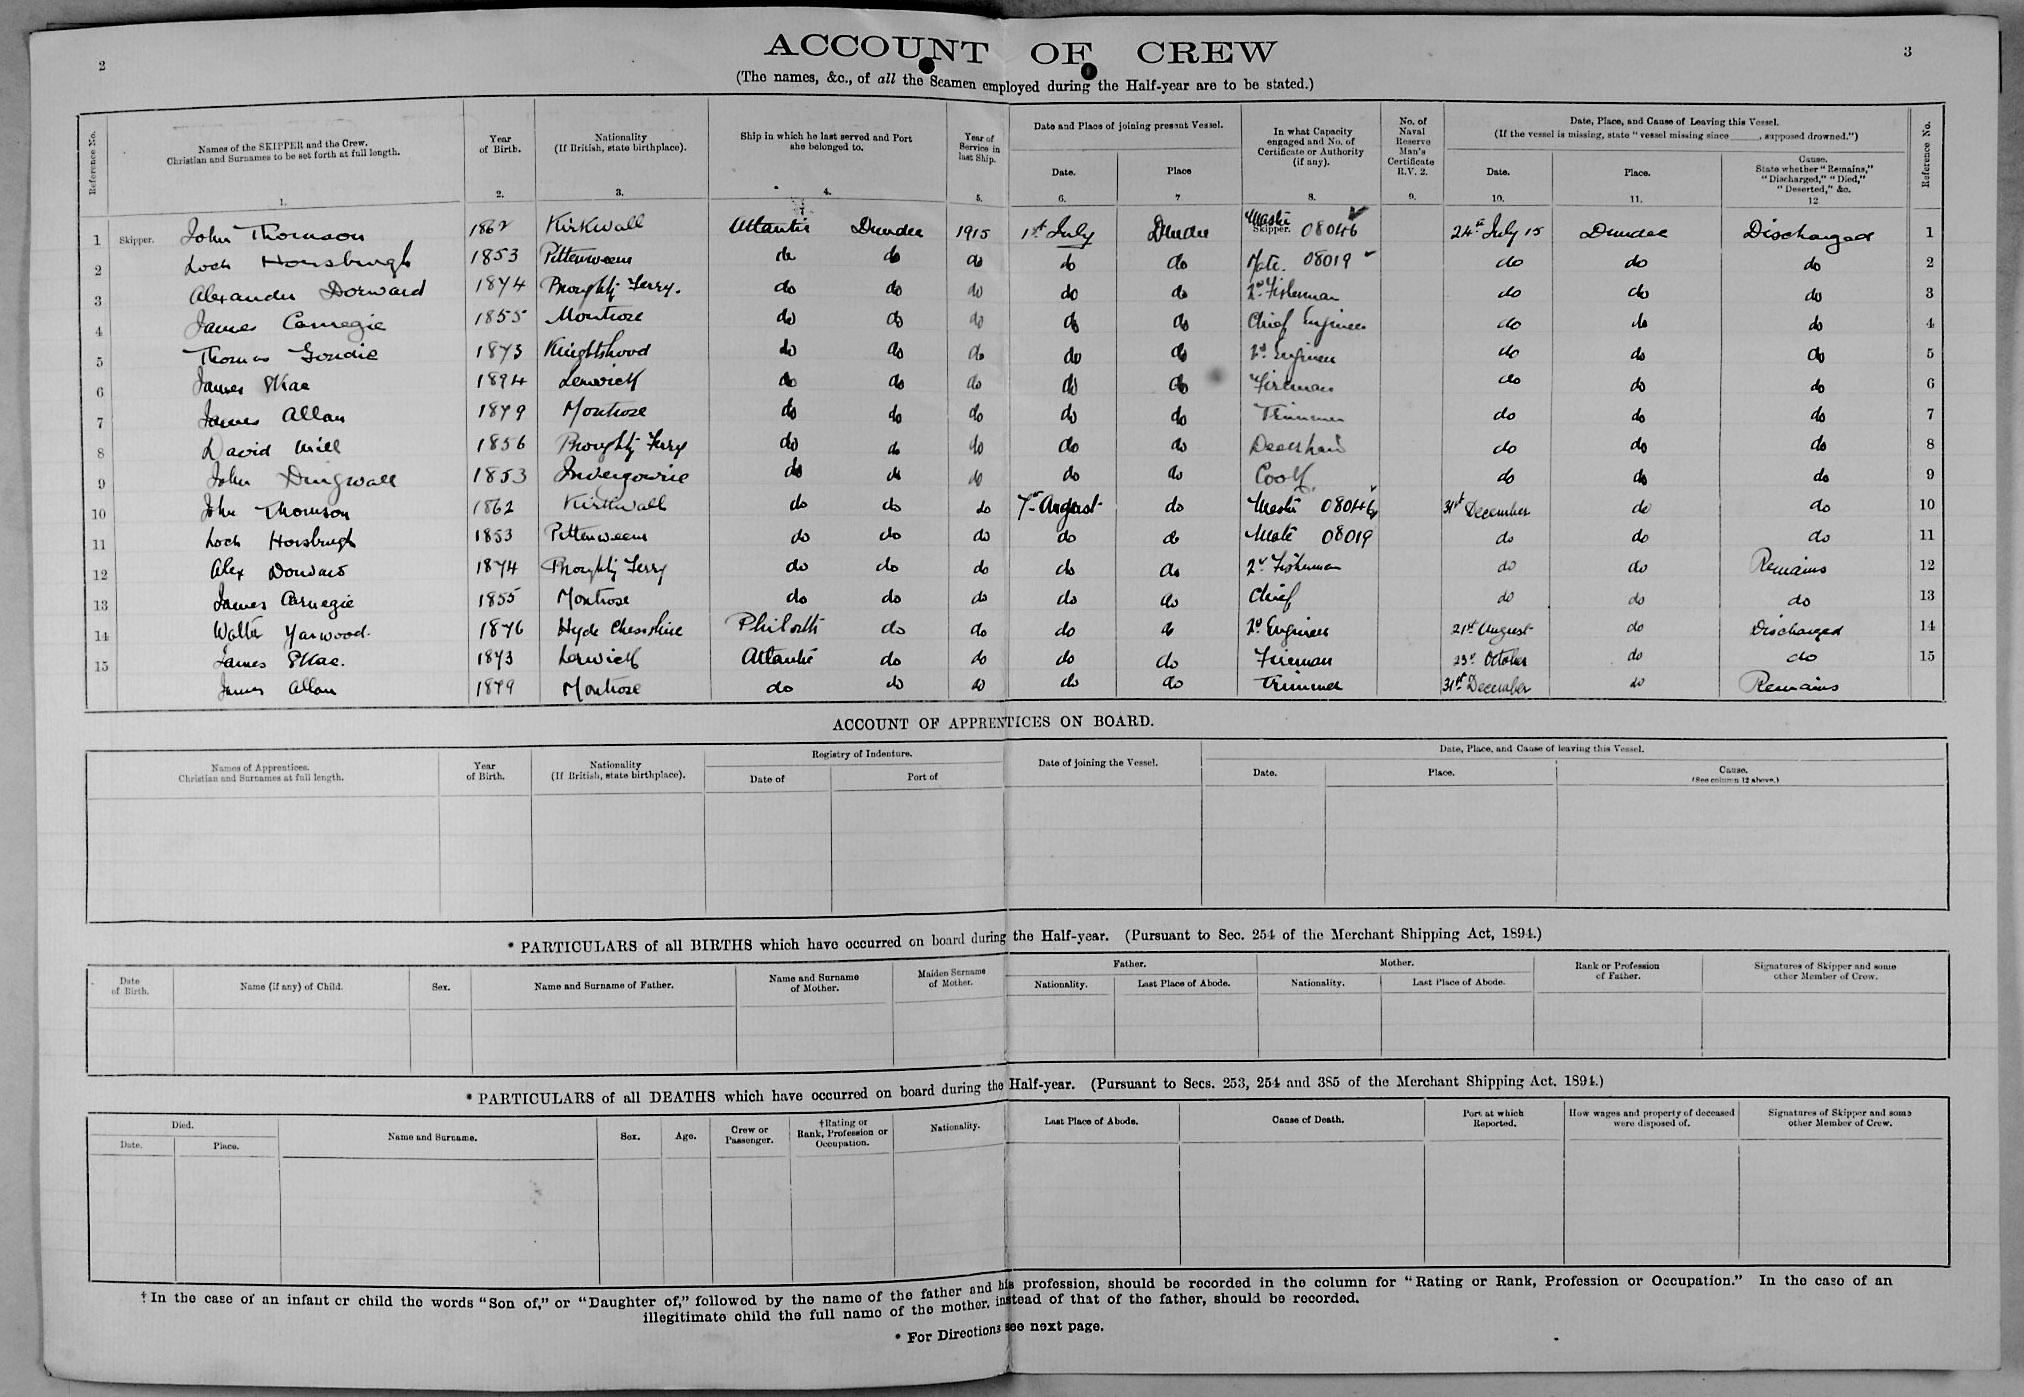 2
3
ACCOUNT OF CREW
(The names, &c., of all the Seamen employed during the Half-year are to be stated.)
Reference No. Names of the SKIPPER and the Crew. Christian and Surnames to be set forth at full length. Year of Birth. Nationality (If British, state birthplace). Ship in which he last served and Port she belonged to. Year of Service in last Ship. Date and Place of joining present Vessel. Date. Place In what Capacity engaged and No. of Certificate or Authority (if any). No. of Naval Reserve Man's Certificate R.V. 2. Date, Place, and Cause of Leaving this Vessel. (If the vessel is missing, state "vessel missing since ____, supposed drowned.") Date. Place. Cause. State whether "Remains," "Discharged," "Died," "Deserted," &c. Reference No.
1. 2. 3. 4. 5. 6. 7 8. 9. 10. 11. 12
1 Skipper. John Thomson 1862 Kirkwall Atlantic Dundee 1915 1st July Dundee Master Skipper. 08046 24th July 15 Dundee Discharged 1
2 Loch Horsburgh 1853 Pittenweem do do do do do Mate. 08019 do do do 2
3 Alexander Dorward 1874 Broughty Ferry. do do do do do 2nd Fisherman do do do 3
4 James Carnegie 1855 Montrose do do do do do Chief Engineer do do do 4
5 Thomas Goudie 1873 do do do do do 2nd Engineer do do do 5
6 James Skae 1894 Lerwick do do do do do Fireman do do do 6
7 James Allan 1879 Montrose do do do do do Trimmer do do do 7
8 David Mill 1856 Broughty Ferry do do do do do Deckhand do do do 8
9 John Dingwall 1853 Invergowrie do do do do do Cook do do do 9
10 John Thomson 1862 Kirkwall do do do 7th August do Master 08046 31st December do do 10
11 Loch Horsburgh 1853 Pittenweem do do do do do Mate 08019 do do do 11
12 Alex Dorward 1874 Broughty Ferry do do do do do 2nd Fisherman do do Remains 12
13 James Carnegie 1855 Montrose do do do do do Chief do do do 13
14 Walter Yarwood. 1876 Hyde Chesshire Philorth do do do do 2nd Engineer 21st August do Discharged 14
15 James Skae. 1873 Lerwick Atlantic do do do do Fireman 23rd October do do 15
James Allan 1879 Montrose do do do do do Trimmer 31st December do Remains
ACCOUNT OF APPRENTICES ON BOARD.
Names of Apprentices. Christian and Surnames at full length. Year of Birth. Nationality (If British, state birthplace). Registry of Indenture. Date of Port of Date of joining the Vessel. Date, Place, and Cause of leaving this Vessel. Date. Place. Cause. (See column 12 above.)
* PARTICULARS of all BIRTHS which have occurred on board during the Half-year. (Pursuant to Sec. 254 of the Merchant Shipping Act, 1894.)
Date of Birth. Name (if any) of Child. Sex. Name and Surname of Father. Name and Surname of Mother. Maiden Surname of Mother. Father. Nationality. Last Place of Abode. Mother. Nationality. Last Place of Abode. Rank or Profession of Father. Signatures of Skipper and some other Member of Crew.
* PARTICULARS of all DEATHS which have occurred on board during the Half-year. (Pursuant to Secs. 253, 254 and 385 of the Merchant Shipping Act. 1894.)
Died. Date. Place. Name and Surname. Sex. Age. Crew or Passenger. †Rating or Rank, Profession or Occupation. Nationality. Last Place of Abode. Cause of Death. Port at which Reported. How wages and property of deceased were disposed of. Signatures of Skipper and some other Member of Crew.
†In the case of an infant or child the words "Son of," or "Daughter of," followed by the name of the father and his profession, should be recorded in the column for "Rating or Rank, Profession or Occupation." In the case of an
illegitimate child the full name of the mother, instead of that of the father, should be recorded.
* For Directions see next page.